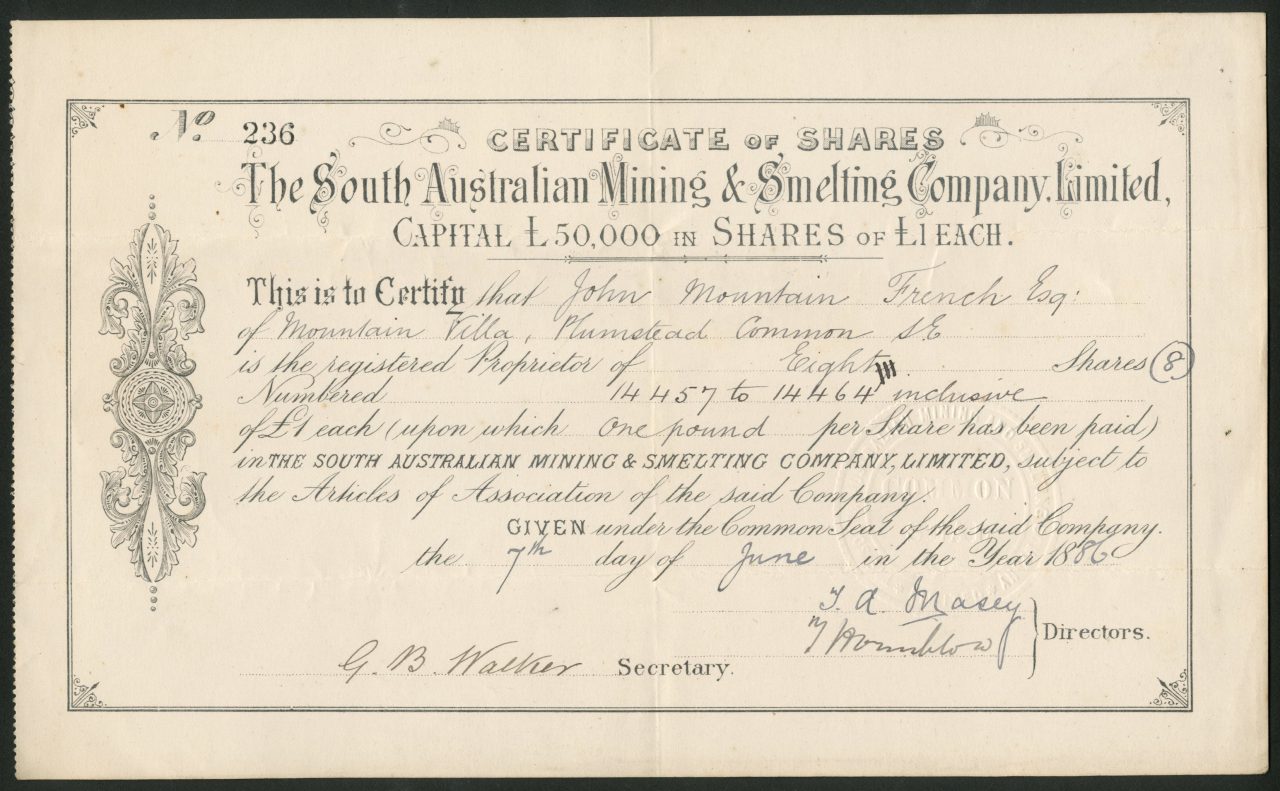 No. 236
CERTIFICATE OF SHARES
The South Australian Mining & Smelting Company. Limited,
CAPITAL £50,000 IN SHARES OF £1 EACH.
This is to Certify that John Mountain French Esq:
of Mountain Villa, Plumstead Common S.E
is the registered Proprietor of Eight Shares (8)
Numbered 14457 to 14464 inclusive
of £1 each (upon which One pound per Share has been paid)
in THE SOUTH AUSTRALIAN MINING & SMELTING COMPANY, LIMITED, subject to
the Articles of Association of the said Company.
COMMON
GIVEN under the Common Seal of the said Company.
the 7th day of June in the Year 1886
T. A. Masey
Directors.
G. B. Walker Secretary.